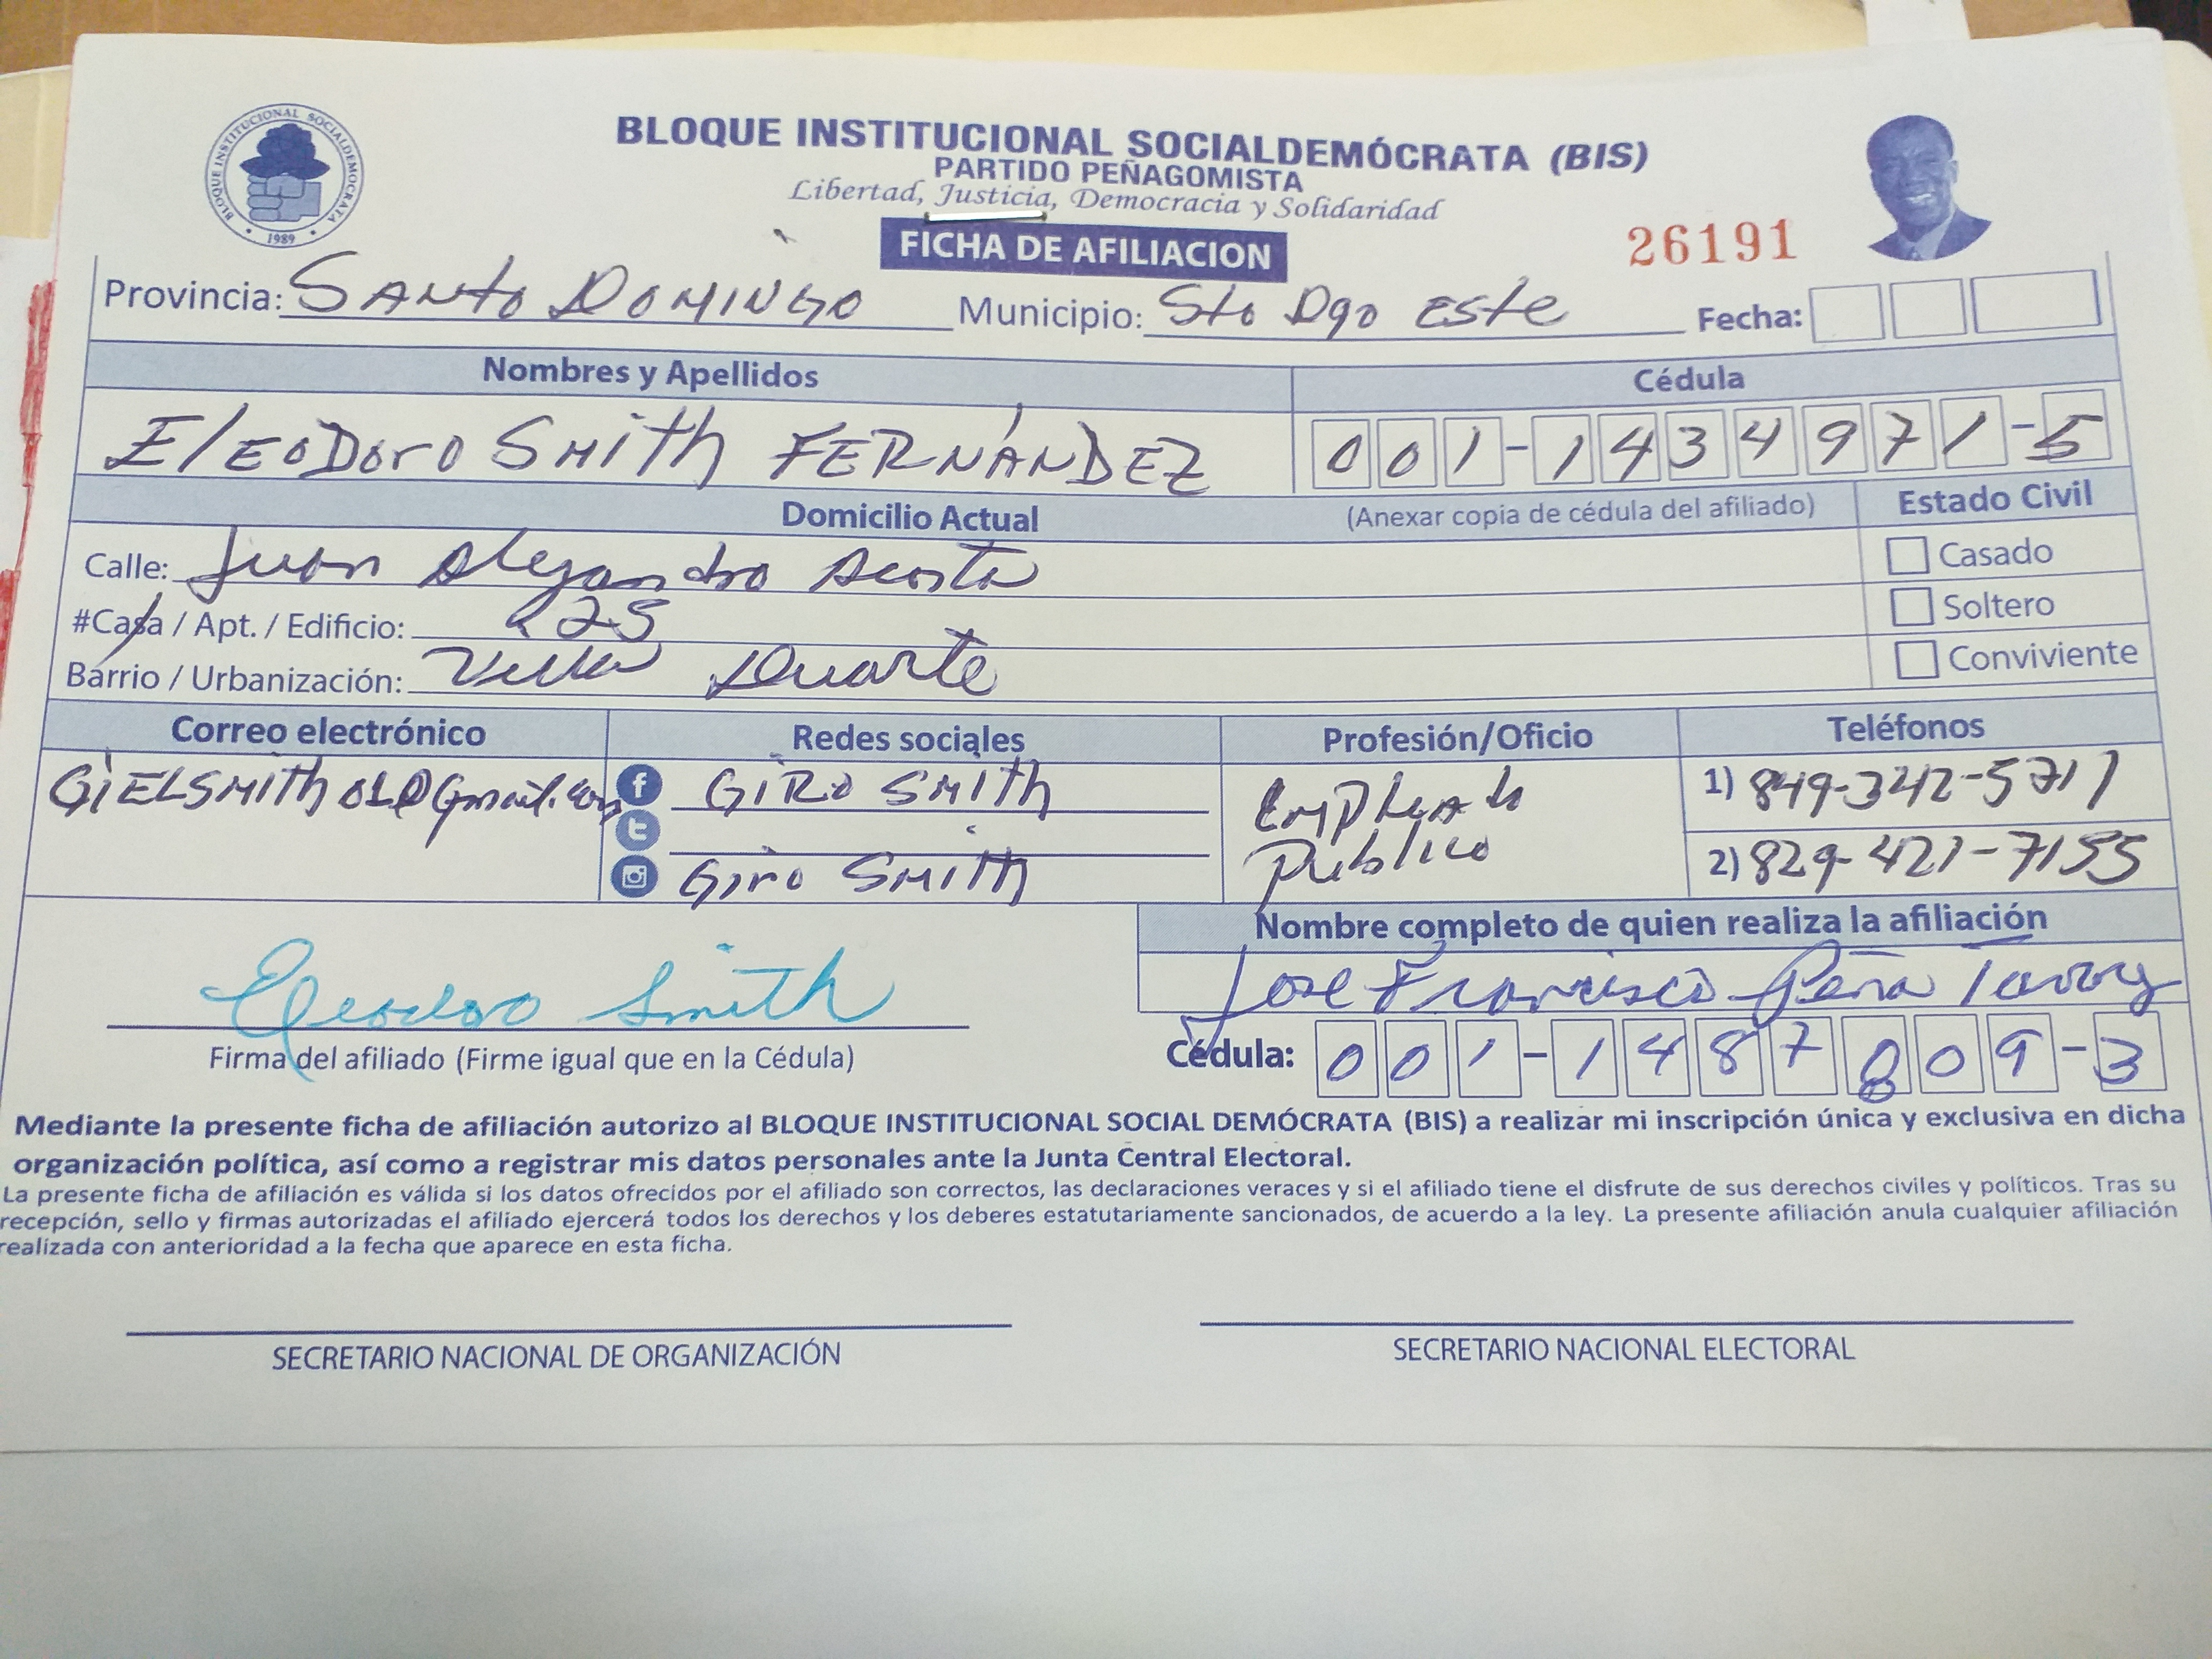 BLOQUE INSTITUCIONAL SOCIALDEMOCRATA
1989
BLOQUE INSTITUCIONAL SOCIALDEMÓCRATA (BIS)
PARTIDO PEÑAGOMISTA
Libertad, Justicia, Democracia y Solidaridad
FICHA DE AFILIACION
26191
Provincia: SANto DOMINGO Municipio: Sto Dgo Este Fecha:
Nombres y Apellidos Cédula
ElEODoro SMith FERNÁNDEZ 001-1434971-5
Domicilio Actual (Anexar copia de cédula del afiliado) Estado Civil
Calle: Juan Alejandro Acosta Casado
#Casa / Apt. / Edificio: 225 Soltero
Barrio / Urbanización: Villa Duarte Conviviente
Correo electrónico Redes sociales Profesión/Oficio Teléfonos
GiELSMith01@Gmail.com GiRo SMith Empleado 1) 849-342-5711
Publico
Giro SMith 2) 829-421-7155
Nombre completo de quien realiza la afiliación
Eleodoro Smith Jose Francisco Peña
Firma del afiliado (Firme igual que en la Cédula) Cédula: 001-1487809-3
Mediante la presente ficha de afiliación autorizo al BLOQUE INSTITUCIONAL SOCIAL DEMÓCRATA (BIS) a realizar mi inscripción única y exclusiva en dicha
organización política, así como a registrar mis datos personales ante la Junta Central Electoral.
La presente ficha de afiliación es válida si los datos ofrecidos por el afiliado son correctos, las declaraciones veraces y si el afiliado tiene el disfrute de sus derechos civiles y políticos. Tras su
recepción, sello y firmas autorizadas el afiliado ejercerá todos los derechos y los deberes estatutariamente sancionados, de acuerdo a la ley. La presente afiliación anula cualquier afiliación
realizada con anterioridad a la fecha que aparece en esta ficha.
SECRETARIO NACIONAL DE ORGANIZACIÓN SECRETARIO NACIONAL ELECTORAL